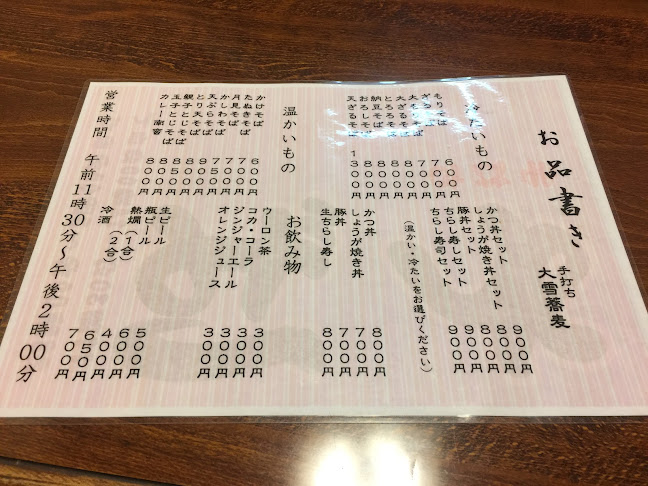 お品書き
手打ち
大雪蕎麦
冷たいもの
もりそば 600円
とろろそば
納豆そば
おろしそば
天ざるそば 1300円
かつ丼セット 900円
しょうが焼き丼セット 800円
豚丼セット 800円
ちらし寿しセット 900円
ちらし寿司セット 900円
(温かい・冷たいをお選びください)
かつ丼 800円
しょうが焼き丼 700円
豚丼 700円
生ちらし寿し 800円
温かいもの
かけそば 600円
たぬきそば 700円
月見そば 700円
かしわそば
天ぷらそば
とり天そば
親子とじそば
玉子とじそば
カレー南蛮 800円
お飲み物
ウーロン茶 300円
コカ・コーラ 300円
ジンジャーエール 300円
オレンジジュース 300円
生ビール 500円
瓶ビール 600円
熱燗(1合) 400円
(2合) 650円
冷酒 700円
営業時間 午前11時30分～午後2時00分